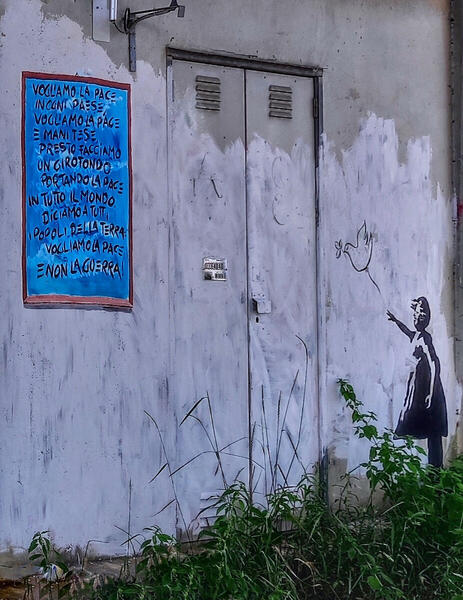 VOGLIAMO LA PACE
IN OGNI PAESE
VOGLIAMO LA PACE
E MANI TESE
PRESTO FACCIAMO
UN GIROTONDO
PORTANDO LA PACE
IN TUTTO IL MONDO
DICIAMO A TUTTI
I POPOLI DELLA TERRA
VOGLIAMO LA PACE
E NON LA GUERRA!